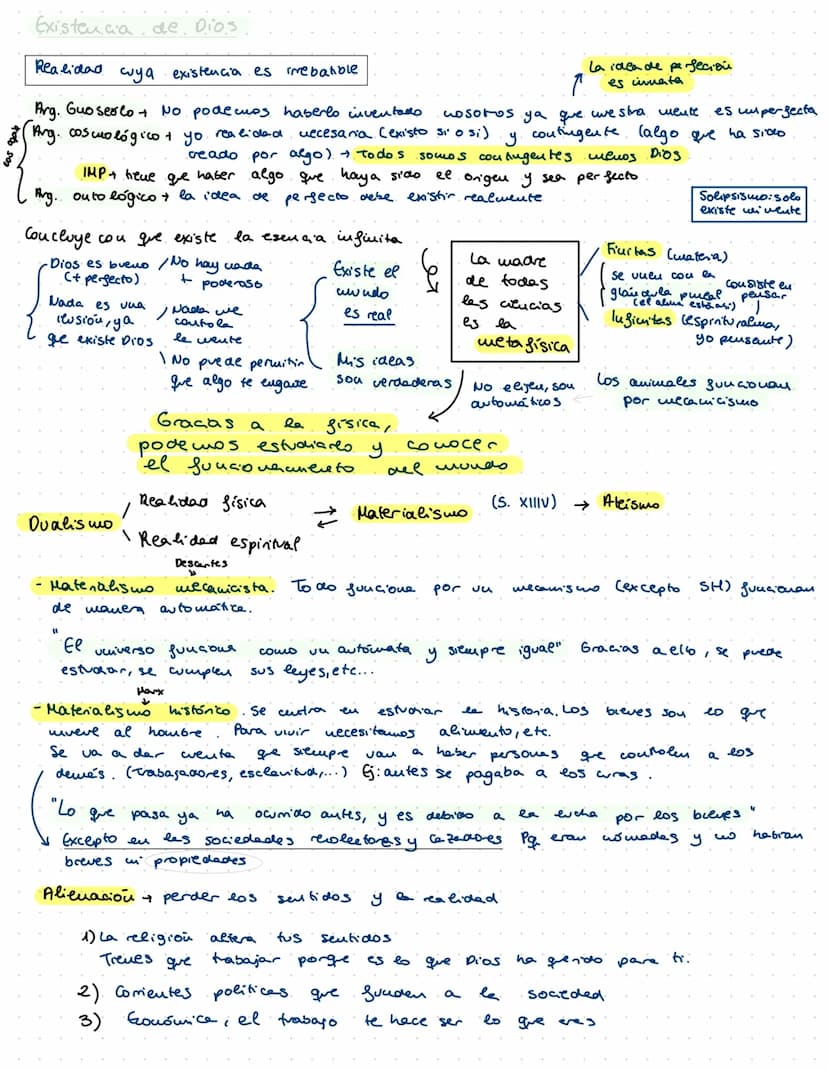 Existencia de Dios
Realidad cuya existencia es irrebatible
La idea de perfección
es innata
Arg. Gnoseolo → No podemos haberlo inventado nosotros ya que nuestra mente es imperfecta
Arg. cosmológico → yo realidad necesaria (existo si o si) y contingente (algo que ha sido
creado por algo) → Todos somos contingentes menos Dios
IMP → tiene que haber algo que haya sido el origen y sea perfecto
Arg. ontológico → la idea de perfecto debe existir realmente
Solipsismo: solo
existe mi mente
Concluye con que existe la esencia infinita
Dios es bueno
(+ perfecto)
No hay nada
+ poderoso
Nada es una
ilusión, ya
qe existe Dios
Nada me
controla
la mente
No puede permitir
que algo te engañe
Existe el
mundo
es real
Mis ideas
son verdaderas
La madre
de todas
las ciencias
es la
metafísica
Finitas (materia)
se unen con la
glándula pineal
(el alma está ahí)
consiste en
pensar
Infinitas (espiritu, alma,
yo pensante)
No eligen, son
automáticos
Los animales funcionan
por mecanicismo
Gracias a la física,
podemos estudiarlo y conocer
el funcionamiento del mundo
Dualismo
Realidad física
Realidad espiritual
Materialismo (S. XIIIV) → Ateísmo
Descartes
- Materialismo mecanicista. Todo funciona por un mecanismo (excepto SH) funcionan
de manera automática.
"El universo funciona como un autómata y siempre igual" Gracias a ello, se puede
estudiar, se cumplen sus leyes, etc...
Marx
- Materialismo histórico. Se centra en estudiar la historia. Los bienes son lo que
mueve al hombre. Para vivir necesitamos alimento, etc.
Se va a dar cuenta qe siempre van a haber personas qe controlen a los
demás. (Trabajadores, esclavitud,...) Ej: antes se pagaba a los curas.
"Lo qe pasa ya ha ocurrido antes, y es debido a la lucha por los bienes"
Excepto en las sociedades recolectores y cazadores Pq eran nómadas y no habían
bienes ni propiedades
Alienación → perder los sentidos y la realidad
1) La religión altera tus sentidos
Tienes que trabajar porqe es lo que Dios ha querido para ti.
2) Corrientes políticas que funden a la sociedad
3) Económica, el trabajo te hace ser lo qe eres